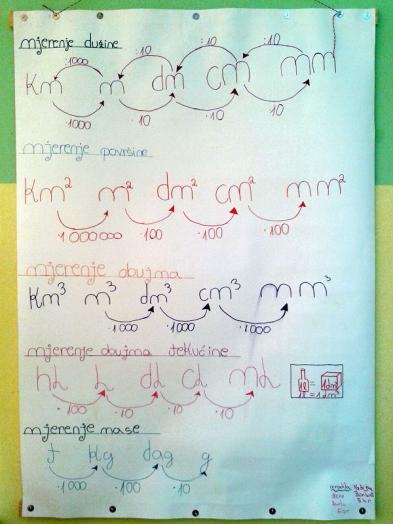 mjerenje dužine
:1000 :10 :10 :10
Km m dm cm mm
·1000 ·10 ·10 ·10
mjerenje površine
Km² m² dm² cm² mm²
·1000000 ·100 ·100 ·100
mjerenje obujma
Km³ m³ dm³ cm³ mm³
·1000 ·1000 ·1000
mjerenje obujma tekućine
hL L dL cL mL
·100 ·10 ·10 ·10
1l = 1dm³
1l = 1dm³
mjerenje mase
t kg dag g
·1000 ·100 ·10